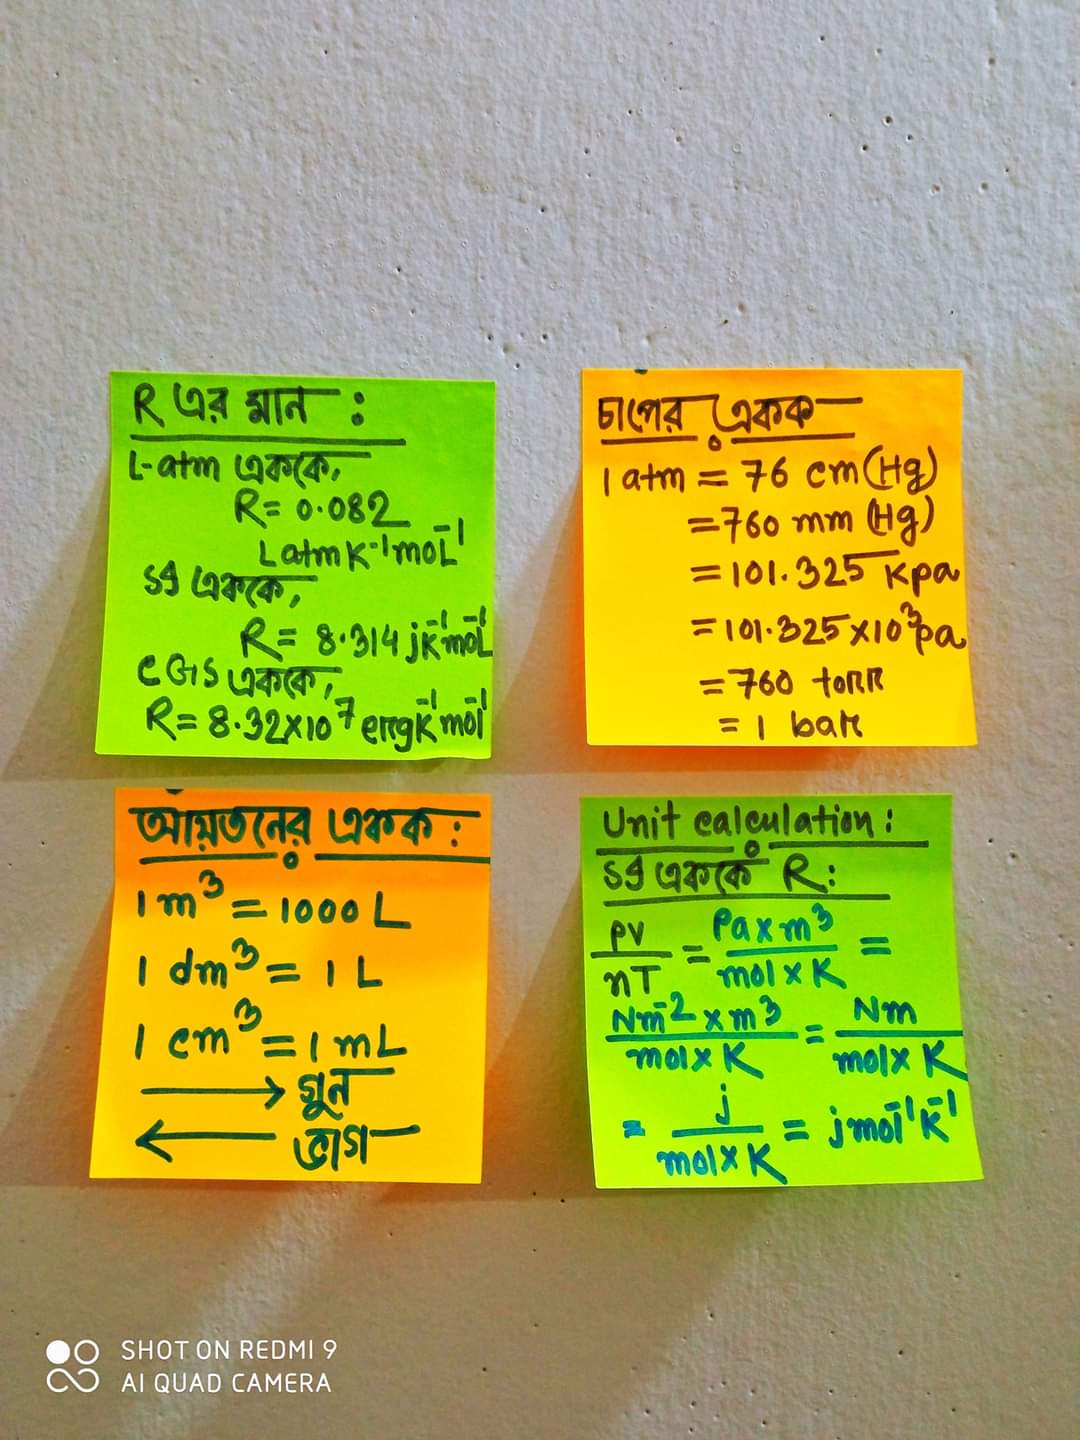 R এর মান :
L-atm এককে,
R= 0.082
L atm K⁻¹ moL⁻¹
SI এককে,
R= 8.314 jK⁻¹moL⁻¹
CGS এককে,
R= 8.32×10⁷ erg K⁻¹ mol⁻¹
চাপের একক
1 atm = 76 cm (Hg)
= 760 mm (Hg)
= 101.325 Kpa
= 101.325×10³ pa
= 760 torr
= 1 bar
আয়তনের একক :
1 m³ = 1000 L
1 dm³ = 1 L
1 cm³ = 1 mL
→ গুন
← ভাগ
Unit calculation :
SI এককে R:
PV/nT = Pa x m³/mol x K =
Nm⁻² x m³/mol x K = Nm/mol x K
= j/mol x K = j mol⁻¹ K⁻¹
SHOT ON REDMI 9
AI QUAD CAMERA